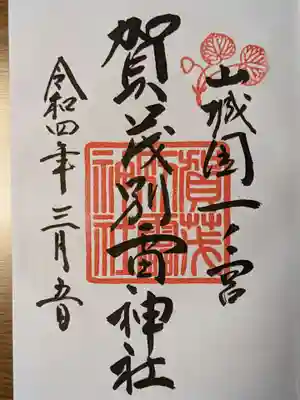 山城國一之宮
賀茂別雷神社
令和四年三月五日
賀茂別雷神社